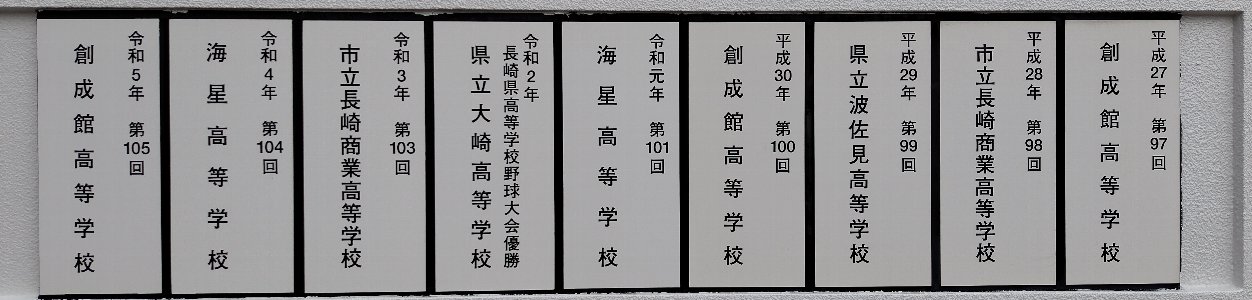 平成27年 第97回
創成館高等学校
平成28年 第98回
市立長崎商業高等学校
平成29年 第99回
県立波佐見高等学校
平成30年 第100回
創成館高等学校
令和元年 第101回
海星高等学校
令和2年
長崎県高等学校野球大会優勝
県立大崎高等学校
令和3年 第103回
市立長崎商業高等学校
令和4年 第104回
海星高等学校
令和5年 第105回
創成館高等学校